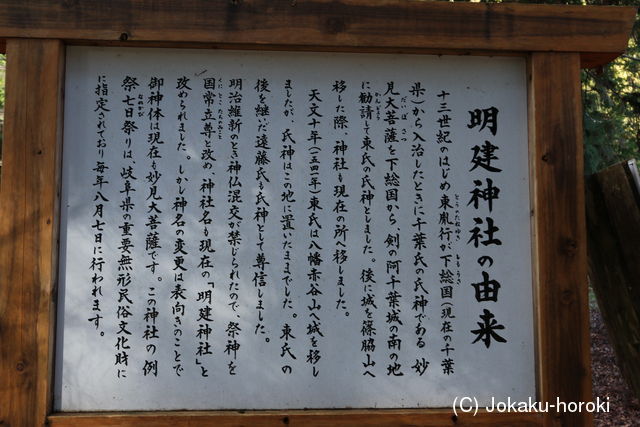 明建神社の由来
十三世紀のはじめ東胤行が下総国(現在の千葉
とうのたねゆき
しもうさ
県)から入治したときに千葉氏の氏神である 妙
見大菩薩を下総国から、剣の阿千葉城の南の地
だいぼさつ
に勧請して東氏の氏神としました。後に城を篠脇山へ
かんじょう
移した際、神社も現在の所へ移しました。
天文十年(一五四一年)東氏は八幡赤谷山へ城を移し
ましたが、氏神はこの地に置いたままでした。東氏の
後を継いだ遠藤氏も氏神として尊信しました。
明治維新のとき神仏混交が禁じられたので、祭神を
国常立尊と改め、神社名も現在の「明建神社」と
くにとこたちのみこと
改められました。しかし神名の変更は表向きのことで
御神体は現在も妙見大菩薩です。この神社の例
祭七日祭りは、岐阜県の重要無形民俗文化財に
なぬかび
に指定されており毎年八月七日に行われます。
(C) Jokaku-horoki